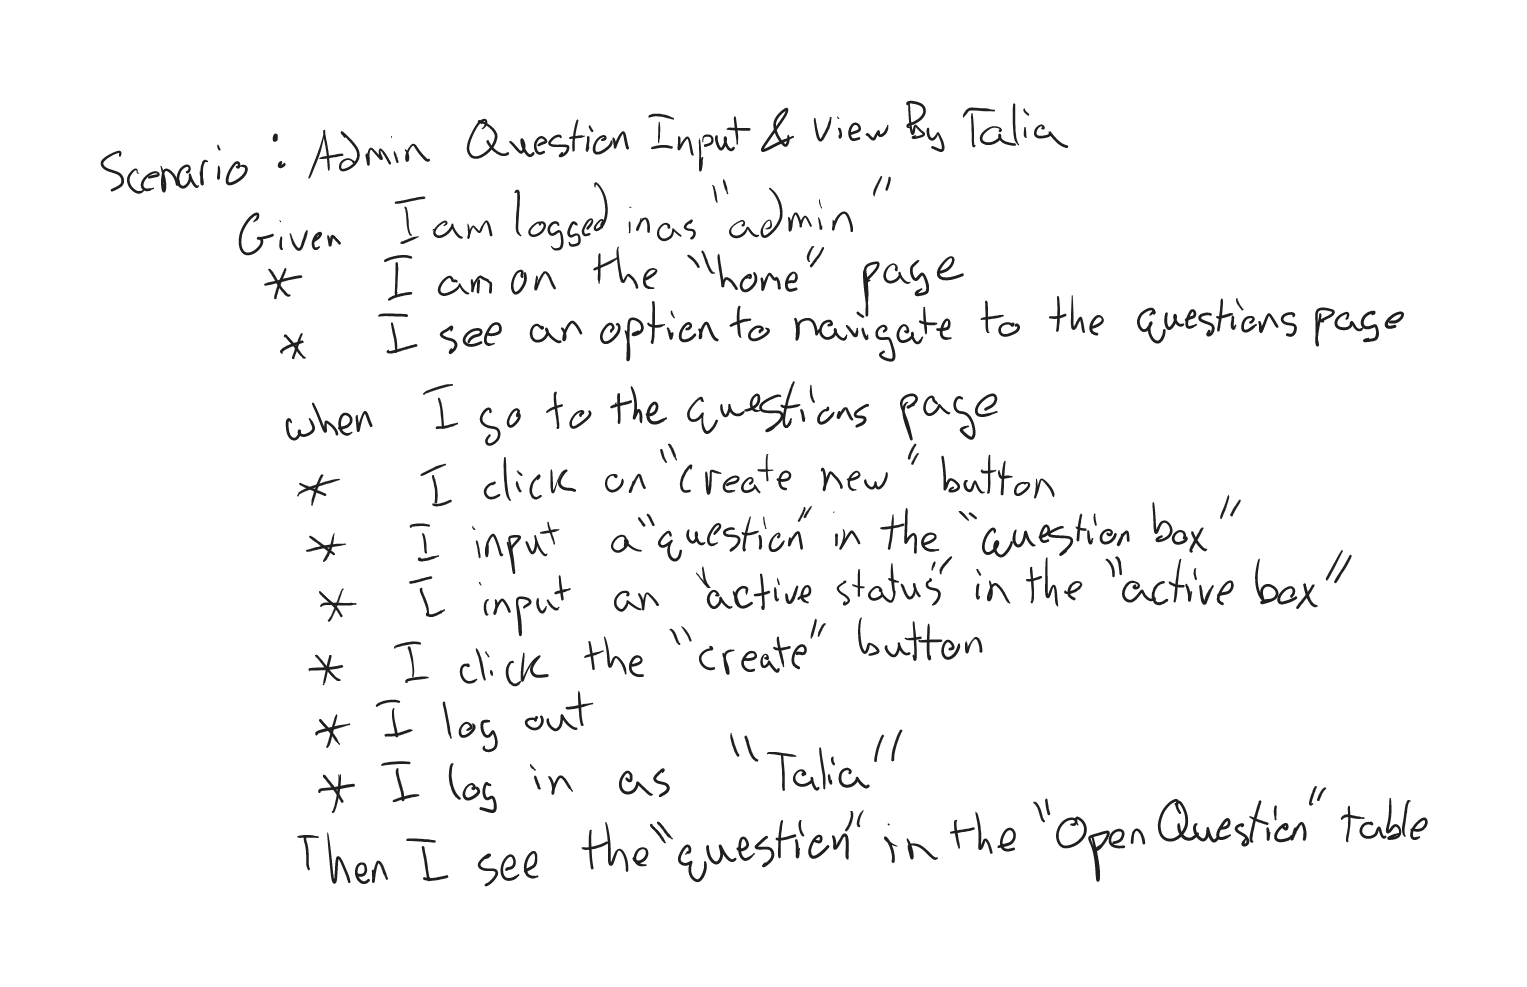 Scenario: Admin Question Input & View By Talia
Given I am logged in as "admin"
* I am on the "home" page
* I see an option to navigate to the questions page
when I go to the questions page
* I click on "create new" button
* I input a "question" in the "question box"
* I input an "active status" in the "active box"
* I click the "create" button
* I log out
* I log in as "Talia"
Then I see the "question" in the "Open Question" table